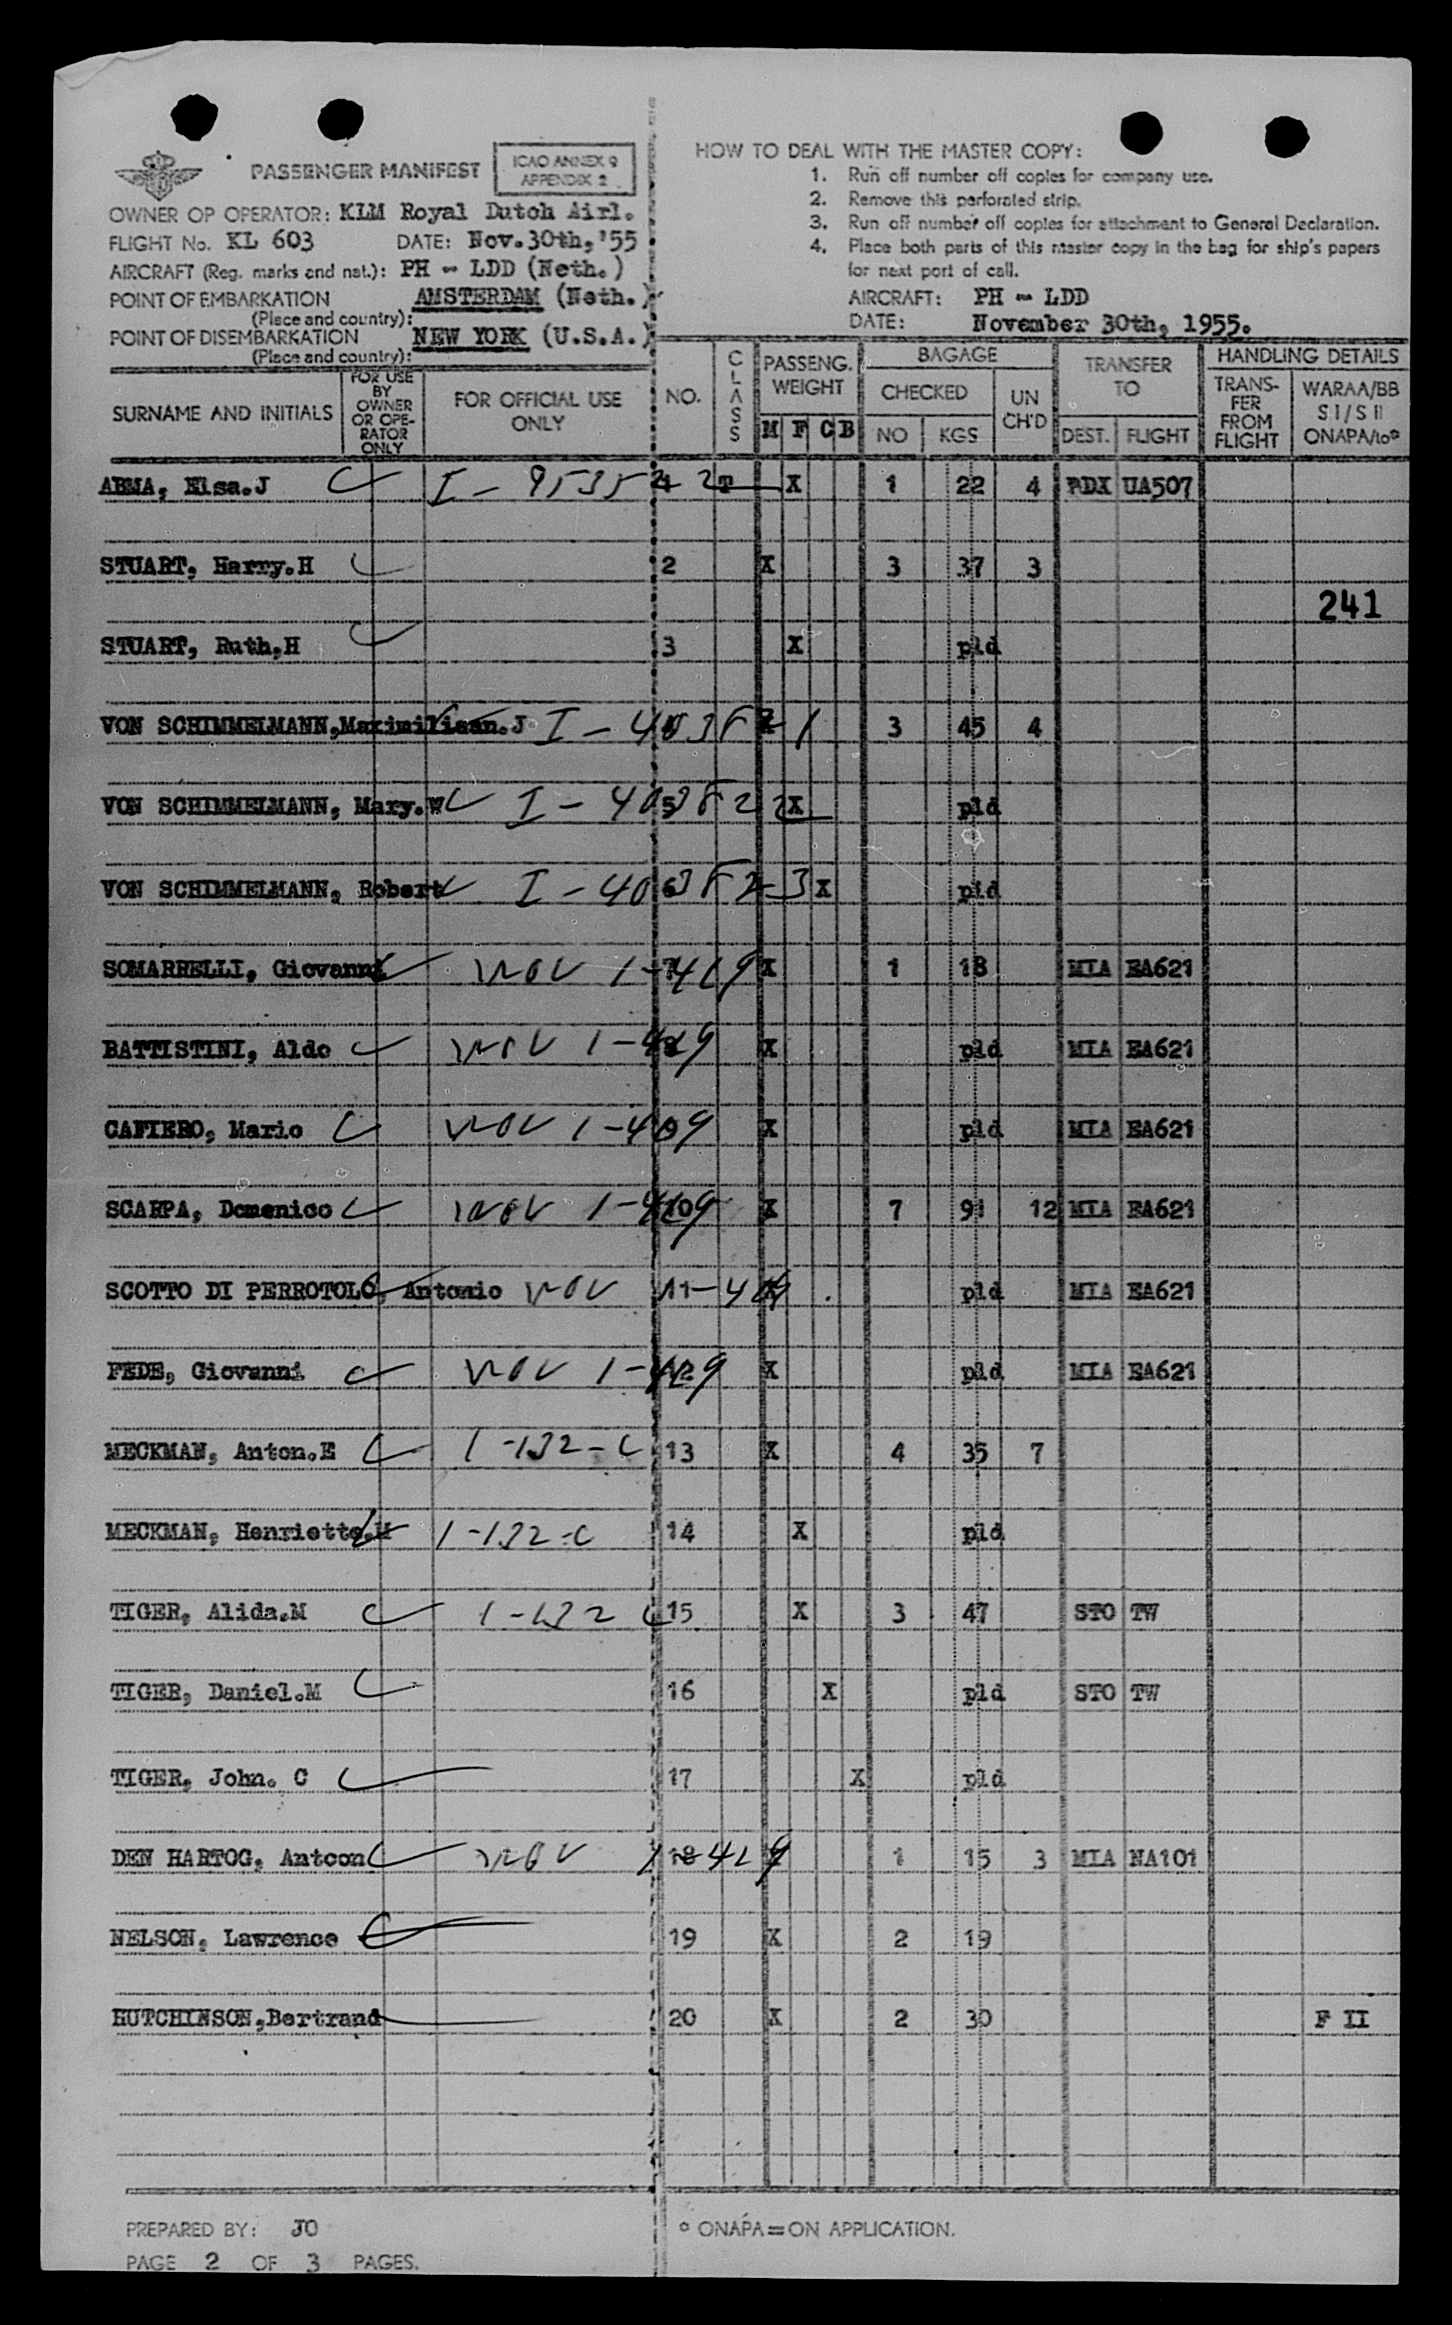 PASSENGER MANIFEST
ICAO ANNEX 9
APPENDIX 2
OWNER OP OPERATOR: KLM Royal Dutch Airl.
FLIGHT No. KL 603 DATE: Nov.30th,'55
AIRCRAFT (Reg. marks and nat.): PH - LDD (Neth.)
POINT OF EMBARKATION AMSTERDAM (Neth.)
(Place and country):
POINT OF DISEMBARKATION NEW YORK (U.S.A.)
(Place and country):
HOW TO DEAL WITH THE MASTER COPY:
1. Run off number off copies for company use.
2. Remove this perforated strip.
3. Run off number off copies for attachment to General Declaration.
4. Place both parts of this master copy in the bag for ship's papers
for next port of call.
AIRCRAFT: PH - LDD
DATE: November 30th, 1955.
SURNAME AND INITIALS
FOR USE BY OWNER OR OPE-RATOR ONLY
FOR OFFICIAL USE ONLY
NO.
CLASS
PASSENG. WEIGHT
M F C B
BAGAGE
CHECKED
NO KGS
UN CH'D
TRANSFER TO
DEST. FLIGHT
HANDLING DETAILS
TRANS-FER FROM FLIGHT
WARAA/BB
S I/S II
ONAPA/to*
ABMA, Elsa.J I - 95354 2 T X 1 22 4 PDX UA507
STUART, Harry.H 2 X 3 37 3
241
STUART, Ruth.H 3 X pld
VON SCHIMMELMANN,Maximiliaan.J I - 40 38 2 1 3 45 4
VON SCHIMMELMANN, Mary.W I - 40 5 38 2 2 X pld
VON SCHIMMELMANN, Robert I - 40 6 38 2 3 X pld
SOMARRELLI, Giovanni WOV 1-419 X 1 18 MIA EA621
BATTISTINI, Aldo WOV 1-419 X pld MIA EA621
CAFIERO, Mario WOV 1-419 X pld MIA EA621
SCARPA, Domenico WOV 1-419 10 X 7 91 12 MIA EA621
SCOTTO DI PERROTOLO, Antonio WOV 11-419 pld MIA EA621
FEDE, Giovanni WOV 1-419 12 X pld MIA EA621
MECKMAN, Anton.E 1-132-C 13 X 4 35 7
MECKMAN, Henriette.M 1-132-C 14 X pld
TIGER, Alida.M 1-132 C 15 X 3 47 STO TW
TIGER, Daniel.M 16 X pld STO TW
TIGER, John. C 17 X pld
DEN HARTOG, Antoon WOV 1 18 419 1 15 3 MIA NA101
NELSON, Lawrence 19 X 2 19
HUTCHINSON,Bertrand 20 X 2 30 F II
PREPARED BY: JO
* ONAPA=ON APPLICATION.
PAGE 2 OF 3 PAGES.